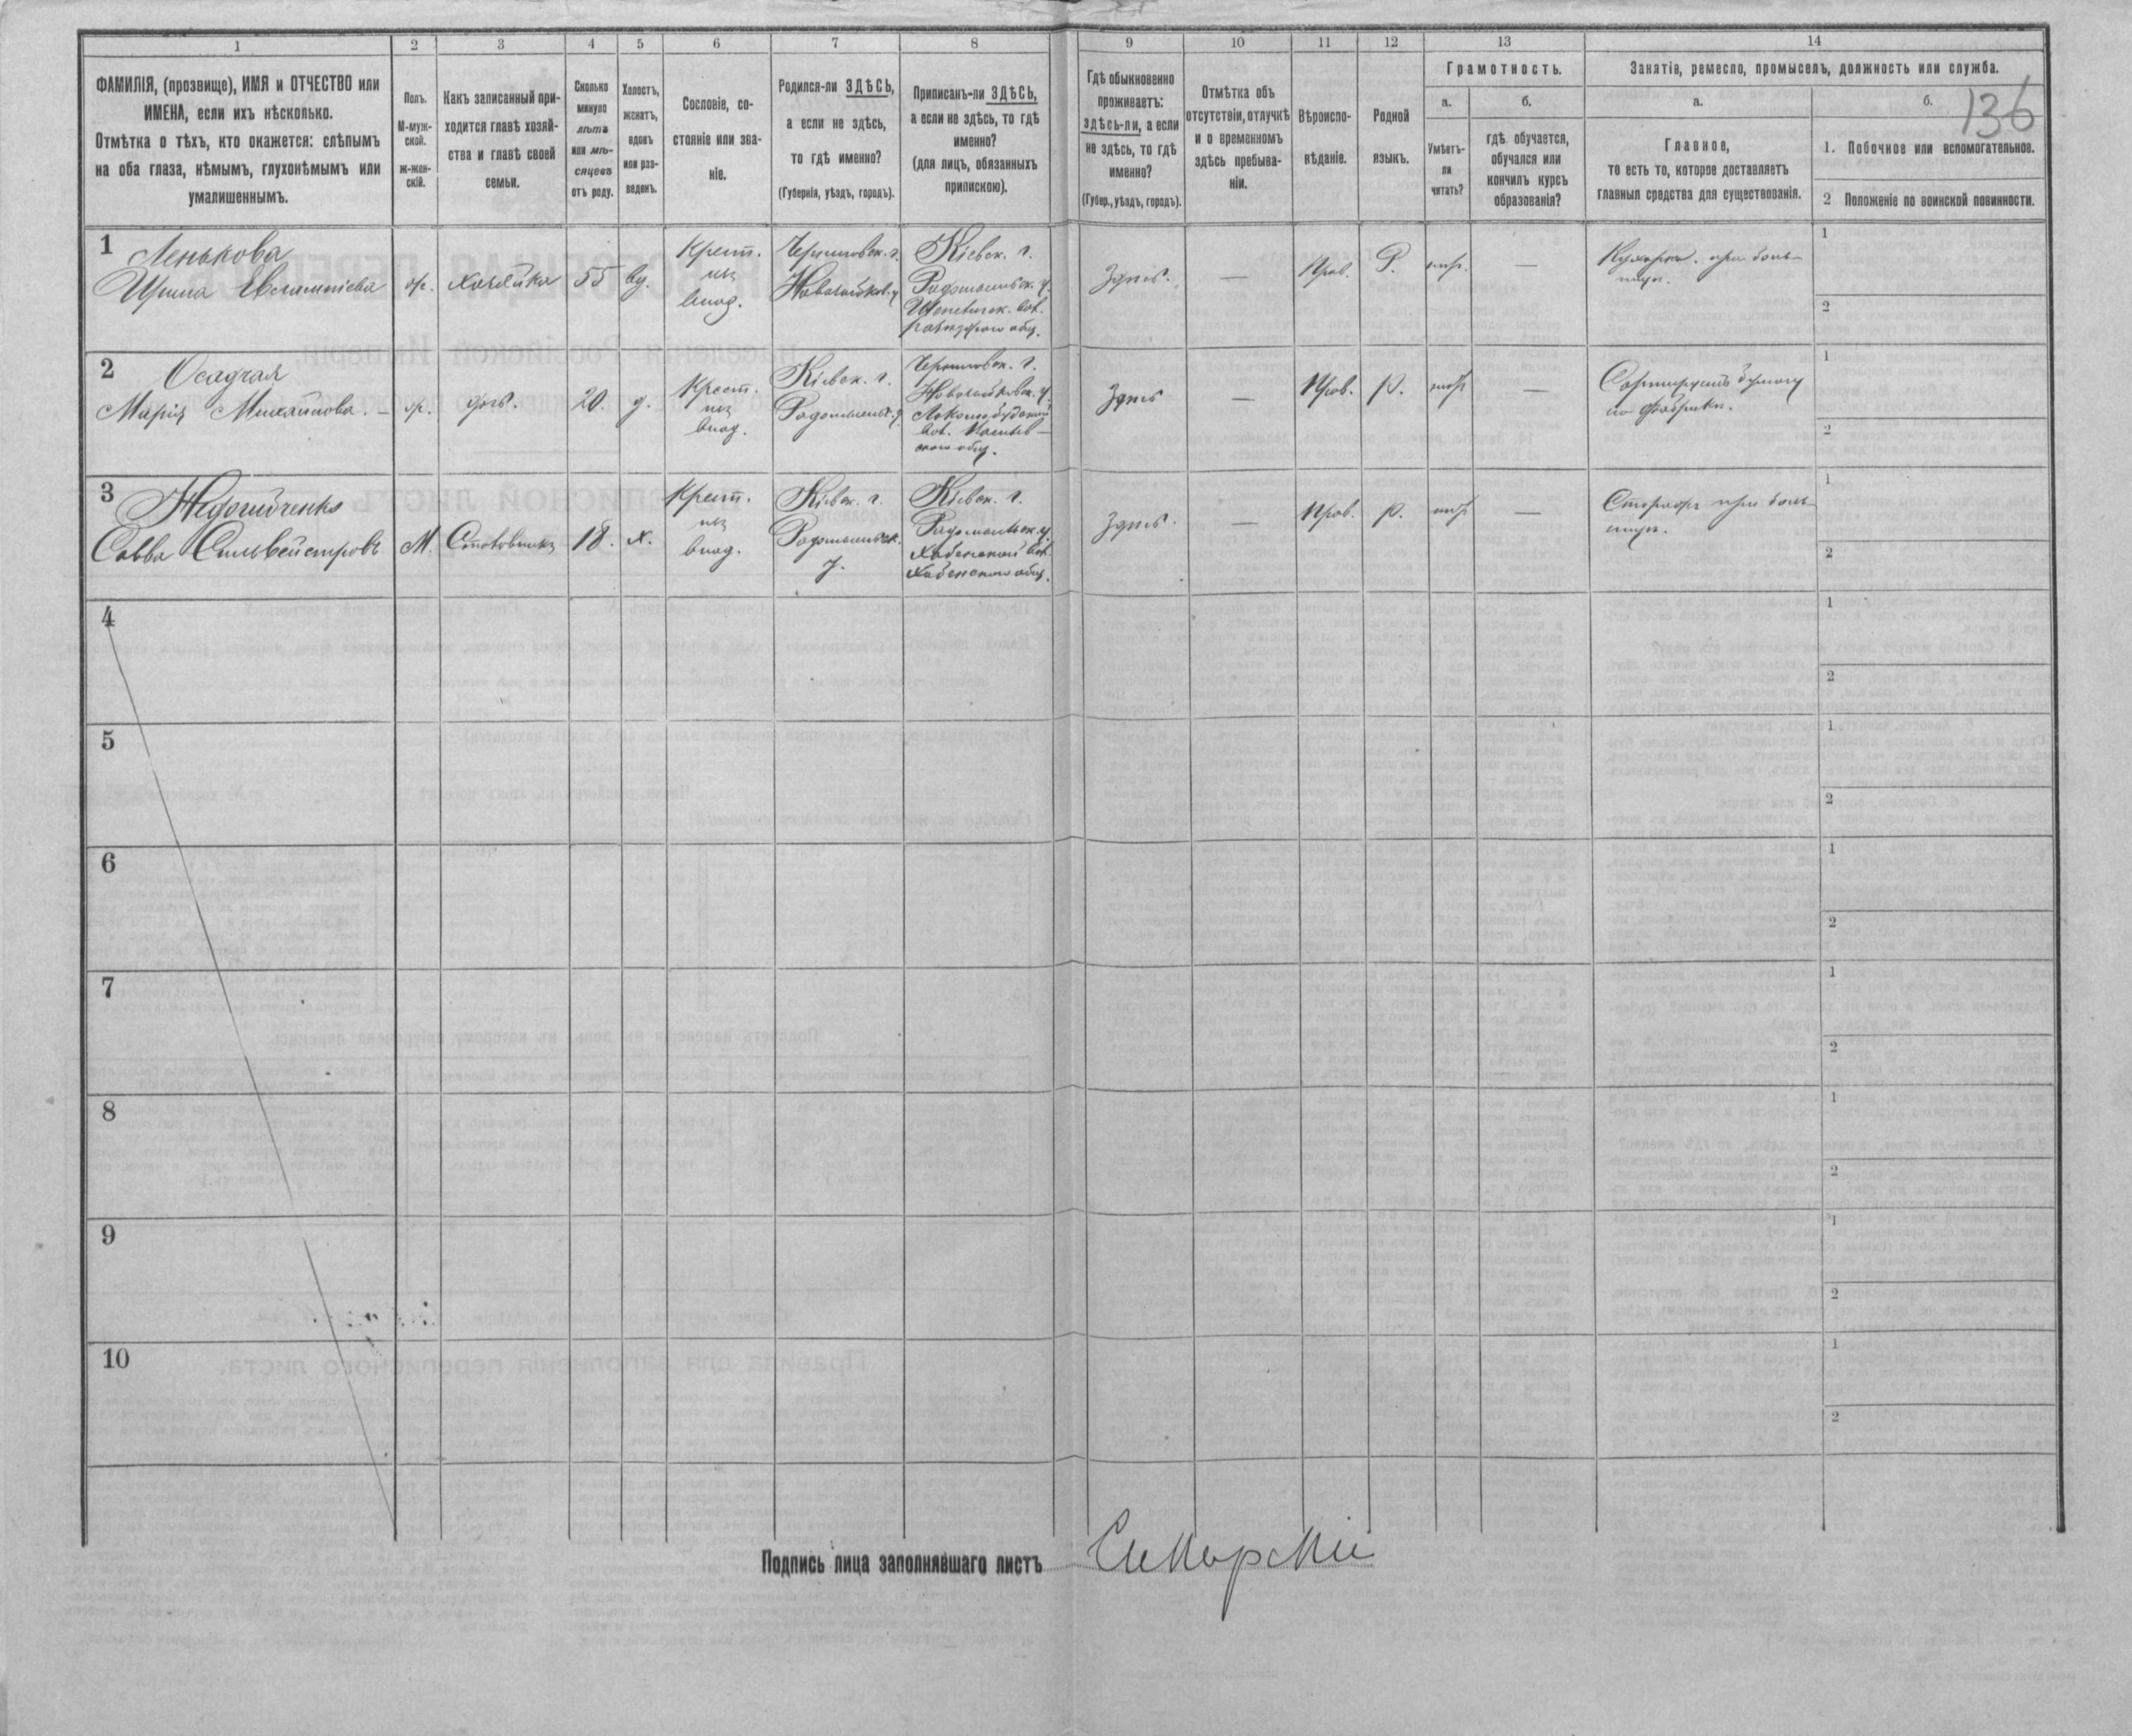 1 2 3 4 5 6 7 8 9 10 11 12 13 14
ФАМИЛІЯ, (прозвище), ИМЯ и ОТЧЕСТВО или
ИМЕНА, если ихъ нѣсколько.
Отмѣтка о тѣхъ, кто окажется: слѣпымъ
на оба глаза, нѣмымъ, глухонѣмымъ или
умалишеннымъ.
Полъ.
М-муж-
ской.
ж-жен-
скій.
Какъ записанный при-
ходится главѣ хозяй-
ства и главѣ своей
семьи.
Сколько
минуло
лѣтъ
или мѣ-
сяцевъ
отъ роду.
Холостъ,
женатъ,
вдовъ
или раз-
веденъ.
Сословіе, со-
стояніе или зва-
ніе.
Родился-ли ЗДѢСЬ,
а если не здѣсь,
то гдѣ именно?
(Губернія, уѣздъ, городъ).
Приписанъ-ли ЗДѢСЬ,
а если не здѣсь, то гдѣ
именно?
(для лицъ, обязанныхъ
припискою).
Гдѣ обыкновенно
проживаетъ:
здѣсь-ли, а если
не здѣсь, то гдѣ
именно?
(Губер., уѣздъ, городъ).
Отмѣтка объ
отсутствіи, отлучкѣ
и о временномъ
здѣсь пребыва-
ніи.
Вѣроиспо-
вѣданіе.
Родной
языкъ.
Грамотность.
а.
Умѣетъ-
ли
читать?
б.
гдѣ обучается,
обучался или
кончилъ курсъ
образованія?
Занятія, ремесло, промыселъ, должность или служба.
а.
Главное,
то есть то, которое доставляетъ
главныя средства для существованія.
б.
136
1. Побочное или вспомогательное.
2 Положеніе по воинской повинности.
1
Ленькова
Ирина Евлампіева
ж.
хозяйка
55
вд.
Крест.
изъ
влад.
Черниговск. г.
Новозыбков. у
Кіевск. г.
Радомысльск. у.
Здѣсь.
—
Прав.
Р.
негр.
—
Кухарка. при боль-
ницѣ.
1
2
2
Осадчая
Марія Михайлова. –
ж.
дочь.
20.
д.
Крест.
изъ
влад.
Кіевск. г.
Радомысльск. у
Черниговск. г.
Новозыбковск. у.
Здѣсь
—
Прав.
Р.
негр
—
Сортируетъ бумагу
на фабрикѣ.
1
2
3
Недогибченко
Савва Сильвестровъ
М.
18.
х.
Крест.
изъ
влад.
Кіевск. г.
Радомысльск.
у.
Кіевск. г.
Радомысльск. у.
Хабенской вол.
Хабенского общ.
Здѣсь.
—
Прав.
Р.
негр
—
Сторожъ при боль-
ницѣ.
1
2
4
1
2
5
1
2
6
1
2
7
1
2
8
1
2
9
1
2
10
1
2
Подпись лица заполнявшаго листъ Сикорскій